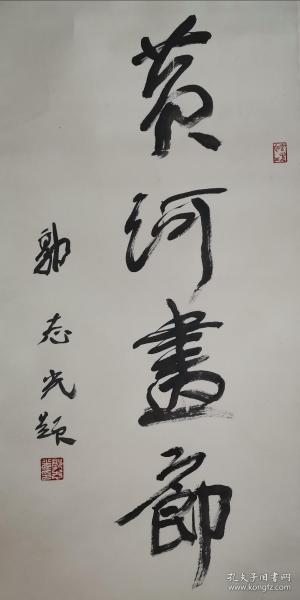 黄河画節
郭志光题
孔夫子旧书网